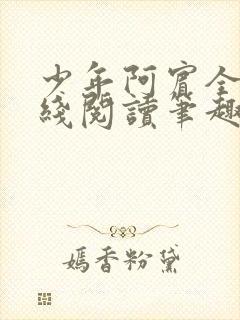 少年阿宾全
綫閱讀筆趣
媽香粉黛